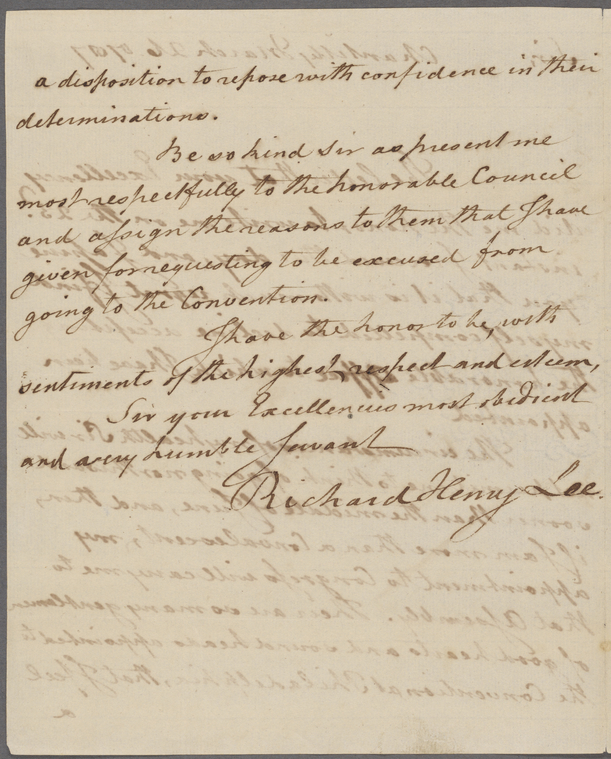 a disposition to repose with confidence in their
determinations.
Be so kind Sir as present me
most respectfully to the honorable Council
and assign the reasons to them that I have
given for requesting to be excused from
going to the Convention.
I have the honor to be, with
sentiments of the highest respect and esteem,
Sir your Excellencies most obedient
and very humble servant
Richard Henry Lee.